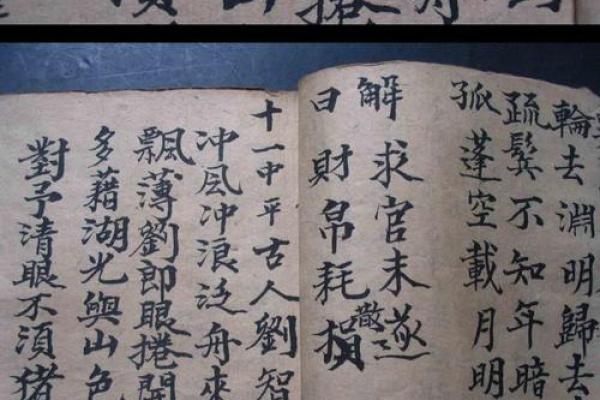 輪去淵明歸去
疏鬢不知年暗
孤蓬空載月明
解求官未遂
曰財帛耗散損
十一中平古人劉智
沖凬沖浪泛舟來
飄薄劉郎眼捲開
多藉湖光與山色
對予清眼不須